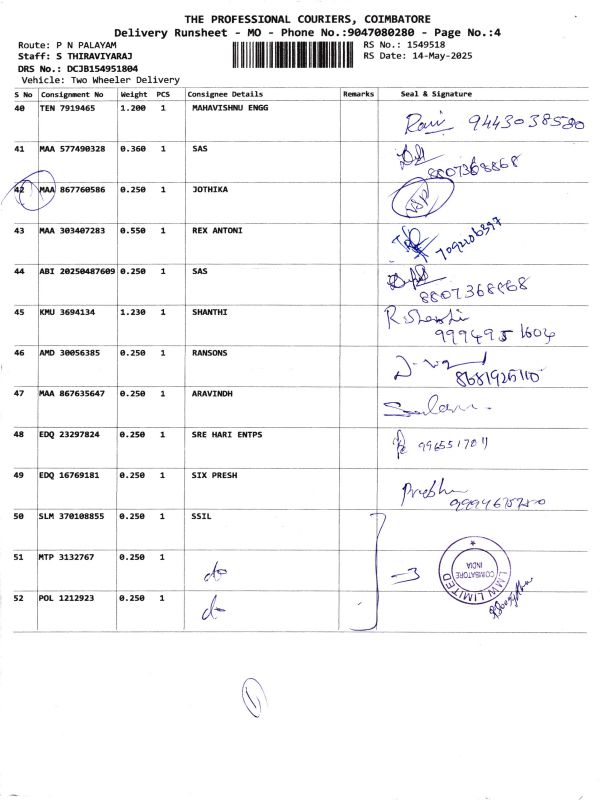 THE PROFESSIONAL COURIERS, COIMBATORE
Delivery Runsheet - MO - Phone No.:9047080280 - Page No.:4
Route: P N PALAYAM RS No.: 1549518
Staff: S THIRAVIYARAJ RS Date: 14-May-2025
DRS No.: DCJB154951804
Vehicle: Two Wheeler Delivery
S No Consignment No Weight PCS Consignee Details Remarks Seal & Signature
40 TEN 7919465 1.200 1 MAHAVISHNU ENGG
Ravi 9443038580
41 MAA 577490328 0.360 1 SAS
8807368868
42 MAA 867760586 0.250 1 JOTHIKA
43 MAA 303407283 0.550 1 REX ANTONI
7092106397
44 ABI 20250487609 0.250 1 SAS
8807368868
45 KMU 3694134 1.230 1 SHANTHI
R. Shanthi
9994951604
46 AMD 30056385 0.250 1 RANSONS
8681925110
47 MAA 867635647 0.250 1 ARAVINDH
48 EDQ 23297824 0.250 1 SRE HARI ENTPS
49 EDQ 16769181 0.250 1 SIX PRESH
Prabhu
50 SLM 370108855 0.250 1 SSIL
51 MTP 3132767 0.250 1 do
3
LMW LIMITED
COIMBATORE
INDIA
52 POL 1212923 0.250 1 do
1